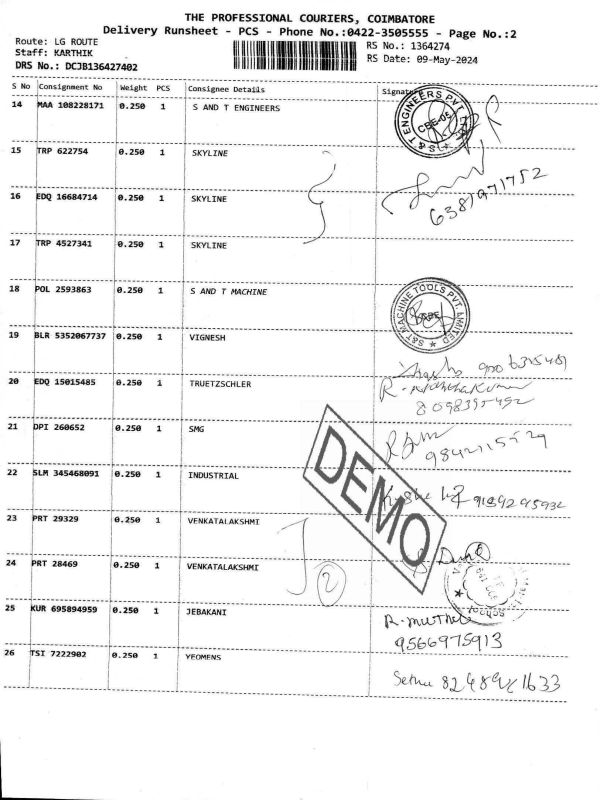 THE PROFESSIONAL COURIERS, COIMBATORE
Delivery Runsheet - PCS - Phone No.:0422-3505555 - Page No.:2
Route: LG ROUTE
RS No.: 1364274
Staff: KARTHIK
RS Date: 09-May-2024
DRS No.: DCJB136427402
S No Consignment No Weight PCS Consignee Details Signature
14 MAA 108228171 0.250 1 S AND T ENGINEERS
S&T ENGINEERS PVT. CBE-05
15 TRP 622754 0.250 1 SKYLINE
16 EDQ 16684714 0.250 1 SKYLINE
6381971752
17 TRP 4527341 0.250 1 SKYLINE
18 POL 2593863 0.250 1 S AND T MACHINE
S&T MACHINE TOOLS PVT. LIMITED
19 BLR 5352067737 0.250 1 VIGNESH
20 EDQ 15015485 0.250 1 TRUETZSCHLER
21 DPI 260652 0.250 1 SMG
22 SLM 345468091 0.250 1 INDUSTRIAL
DEMO
23 PRT 29329 0.250 1 VENKATALAKSHMI
24 PRT 28469 0.250 1 VENKATALAKSHMI
2
25 KUR 695894959 0.250 1 JEBAKANI
9566975913
26 TSI 7222902 0.250 1 YEOMENS